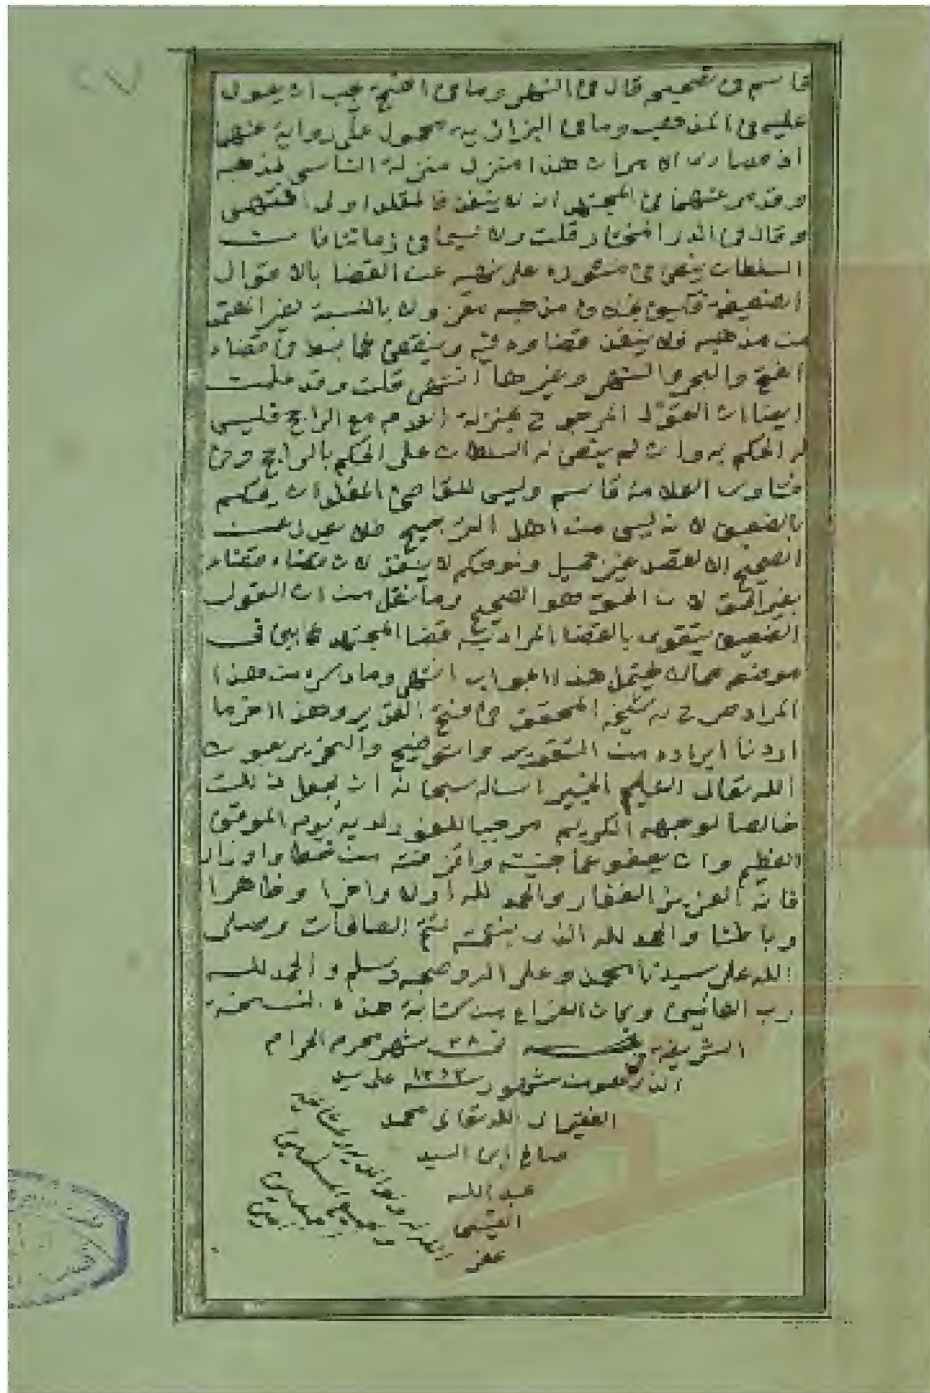 قاسم في تصحيحه قال في النهر وما في الفتح يجب ان يعول
عليه في المذهب وما في البزازية محمول على رواية عنهما
اذ قصارى الامر ان هذا منزل منزلة الناسي لمذهبه
وقد مر عنهما في المجتهد انه لا ينفذ فالمقلد اولى انتهى
وقال في الدر المختار قلت ولا سيما في زماننا فان
السلطان ينص في منشوره على نهيه عن القضا بالاقوال
الضعيفة فكيف بخلاف مذهبه فيكون معزولا بالنسبة لغير المعتمد
من مذهبه فلا ينفذ قضاوه فيه وينقض كما بسط في قضاء
الفتح والبحر والنهر وغيرها انتهى قلت وقد علمت
ايضا ان القول المرجوح بمنزلة العدم مع الراجح فليس
له الحكم به وان لم ينص له السلطان على الحكم بالراجح وفي
فتاوى العلامة قاسم وليس للقاضي المقلد ان يحكم
بالضعيف لانه ليس من اهل الترجيح فلا يعدل عن
الصحيح الا لقصد غير جميل ولو حكم لا ينفذ لان قضاه قضاء
بغير الحق لان الحق هو الصحيح وما نقل من ان القول
الضعيف يتقوى بالقضا المراد به قضا المجتهد كما بين في
موضعه مما لا يحتمل هذا الجواب انتهى وما ذكره من هذا
المراد صرح به شيخه المحقق في فتح القدير وهذا اخر ما
اردنا ايراده من التقرير والتوضيح والتحرير بعون
الله تعالى العليم الخبير اساله سبحانه ان يجعل ذلك
خالصا لوجهه الكريم موجبا للفوز لديه يوم الموقف
العظيم وان يعفو عما جنيته واقترفته من خطا واوزار
فانه العزيز الغفار والحمد لله اولا واخرا وظاهرا
وباطنا والحمد لله الذي بنعمته تتم الصالحات وصلى
الله على سيدنا محمد وعلى اله وصحبه وسلم والحمد لله
رب العالمين وكان الفراغ من كتابة هذه النسخة
الشريفة في ٢٨ شهر محرم الحرام
الذي هو من شهور سنة ١٢٩٣ على يد
الفقير الى الله تعالى محمد
صالح ابن السيد
عبد الله
غفر
الله له ولوالديه
وجميع المسلمين